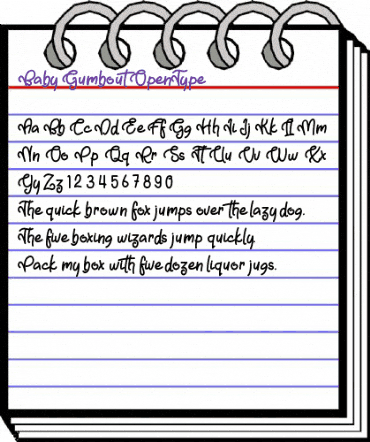 Baby Gumbout OpenType
Aa Bb Cc Dd Ee Ff Gg Hh Ii Jj Kk Ll Mm
Nn Oo Pp Qq Rr Ss Tt Uu Vv Ww Xx
Yy Zz 1 2 3 4 5 6 7 8 9 0
The quick brown fox jumps over the lazy dog.
The five boxing wizards jump quickly.
Pack my box with five dozen liquor jugs.